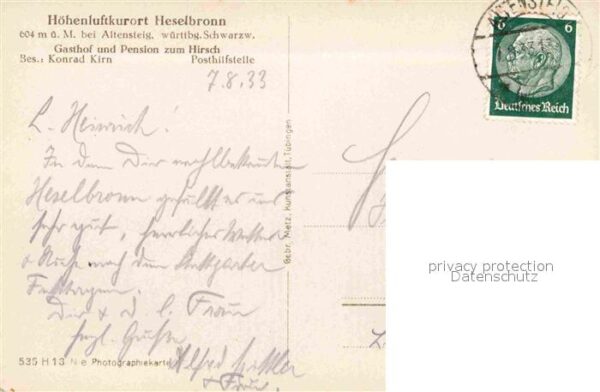 Höhenluftkurort Heselbronn
604 m ü. M. bei Altensteig, württbg. Schwarzw.
Gasthof und Pension zum Hirsch
Bes.: Konrad Kirn Posthilfstelle
7.8.33
L. Heinrich!
In dem Dir wohlbekannten
Heselbronn gefällt es uns
sehr gut, herrliches Wetter
& Ruhe nach den Stuttgarter
Festtagen.
Dir & d. l. Frau
herzl. Grüße
Alfred
& Frau.
535 H 13 N e Photographiekarte
Gebr. Metz, Kunstanstalt, Tübingen
ALTENSTEIG
6 6
Deutsches Reich
privacy protection
Datenschutz